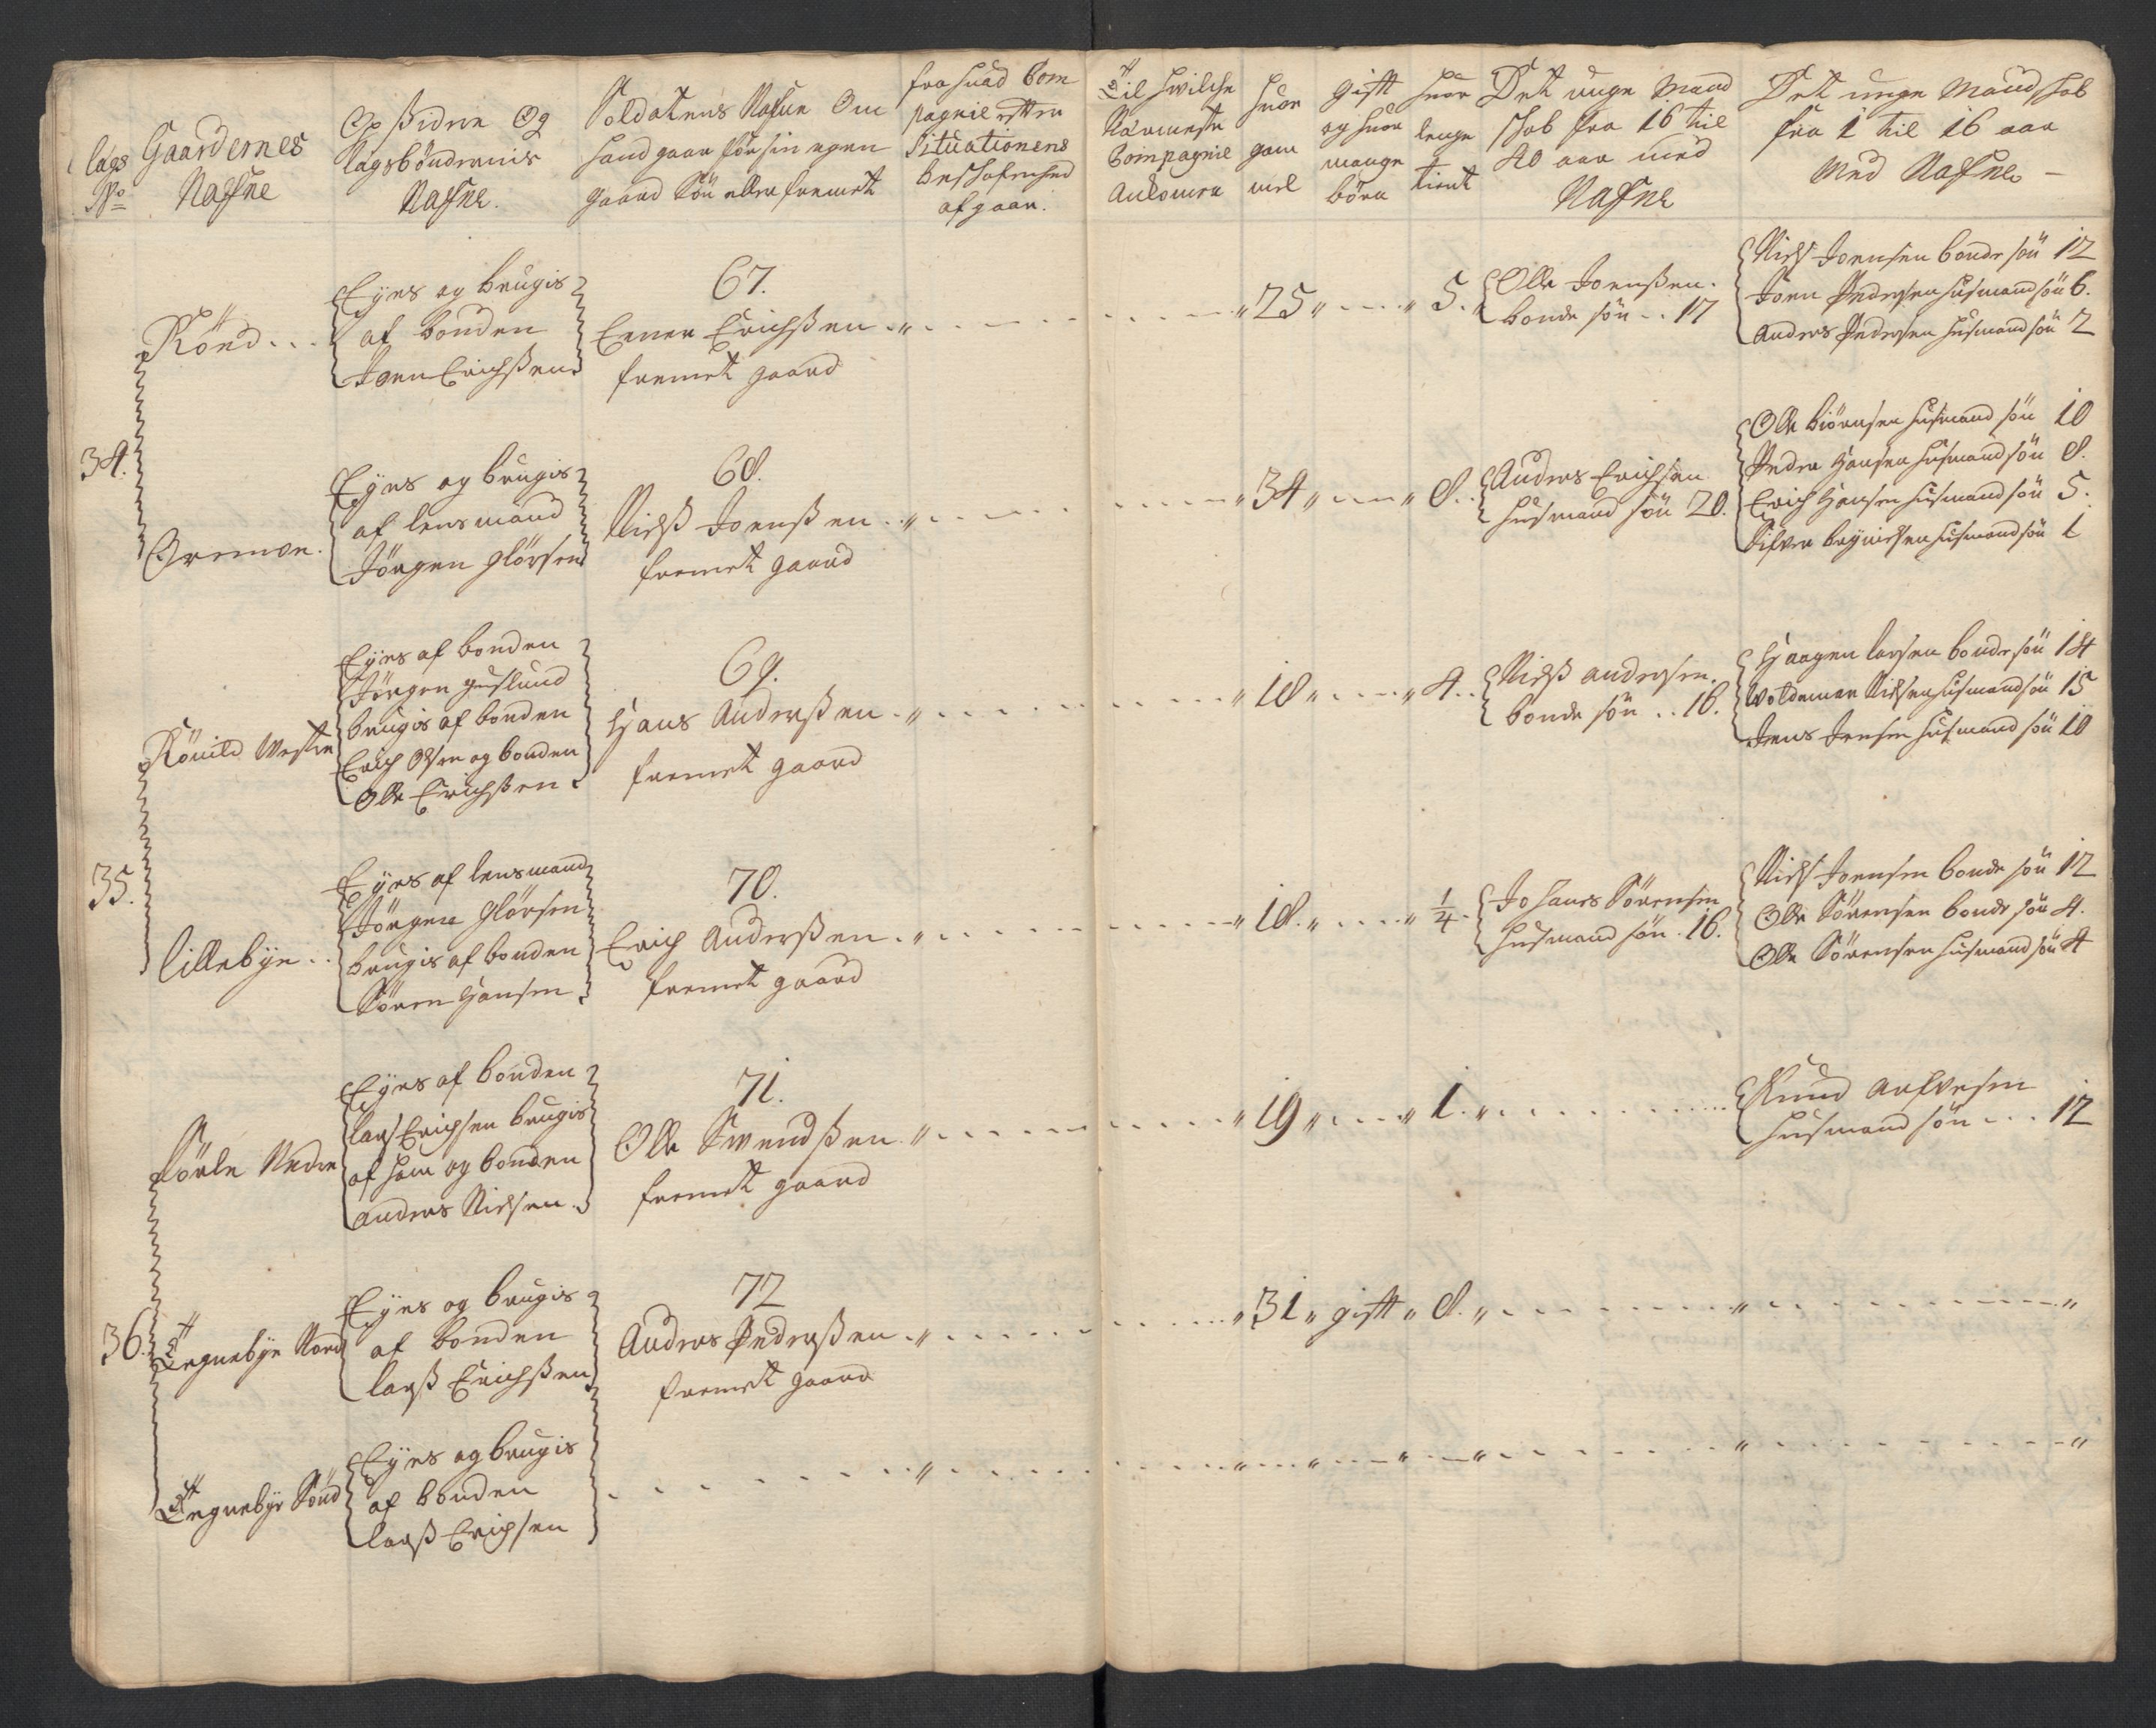 lags
No
Gaardernes
Nafne
Opsidern Og
lagsbøndernis
Nafne.
Soldatens Nafne Om
hand gaar for sin egen
gaard Søn eller fremet
fra huad Com
pagnie etter
Situationens
beschafenhed
afgaar.
Til hwilche
Nærmeste
Compagnie
Ankomen
huor
gam
mel
gift
og huor
mange
børn
huor
lenge
tient
Det unge Mand
schab fra 16 til
40 aar med
Nafne
Det unge Mandschab
fra 1 til 16 aar
Med Nafne
34.
Rönd...
Eyes og brugis
af bonden
Joen Erichssen
67.
Ener Erichssen
fremet gaard
25
5.
Olle Joenssen.
bonde søn .. 17
Niels Joensen bonde søn 12
Joen Pedersen husmand søn 6.
Anders Pedersen husmand søn 2
Oremon.
Eyes og brugis
af lensmand
Jörgen Glörsen
68.
Nielss Joenssen
fremet gaard
34
8.
Anders Erichsen
husmand søn 20.
Olle Biörnsen husmand søn 10
Peder Hansen husmand søn 8.
Erich Hansen husmand søn 5.
Sifver Bryniesen husmand søn 1
35.
Rönild Westre
Eyes af bonden
Jörgen Huslund
brugis af bonden
Erich Olsen og bonden
Olle Erichssen
69.
Hans Anderssen
fremet gaard
18
4.
Nielss Andersen.
bonde søn .. 16.
Haagen Larsen bonde søn 14
Woldemar Nielsen husmand søn 15
Jens Jensen husmand søn 10
lillebye..
Eyes af lensmand
Jörgen Glörsen
brugis af bonden
Sören Hansen
70.
Erich Anderssen
fremet gaard
18.
1/4
Johanes Sörensen
husmand søn . 16.
Niels Joensen bonde søn 12
Olle Sörensen bonde søn 4.
Olle Sörensen husmand søn 4
36.
Sörle Nedre
Eyes af bonden
Lars Erichsen brugis
af ham og bonden
Anders Nielsen
71.
Olle Swendssen
fremet gaard
19
1.
Knud Arfvesen
husmand søn ... 12
Tegnebye Nord
Eyes og brugis
af bonden
Larss Erichssen
72
Anders Pederssen
fremet gaard
31
gift
8.
Tegnebye Sönd
Eyes og brugis
af bonden
Larss Erichsen